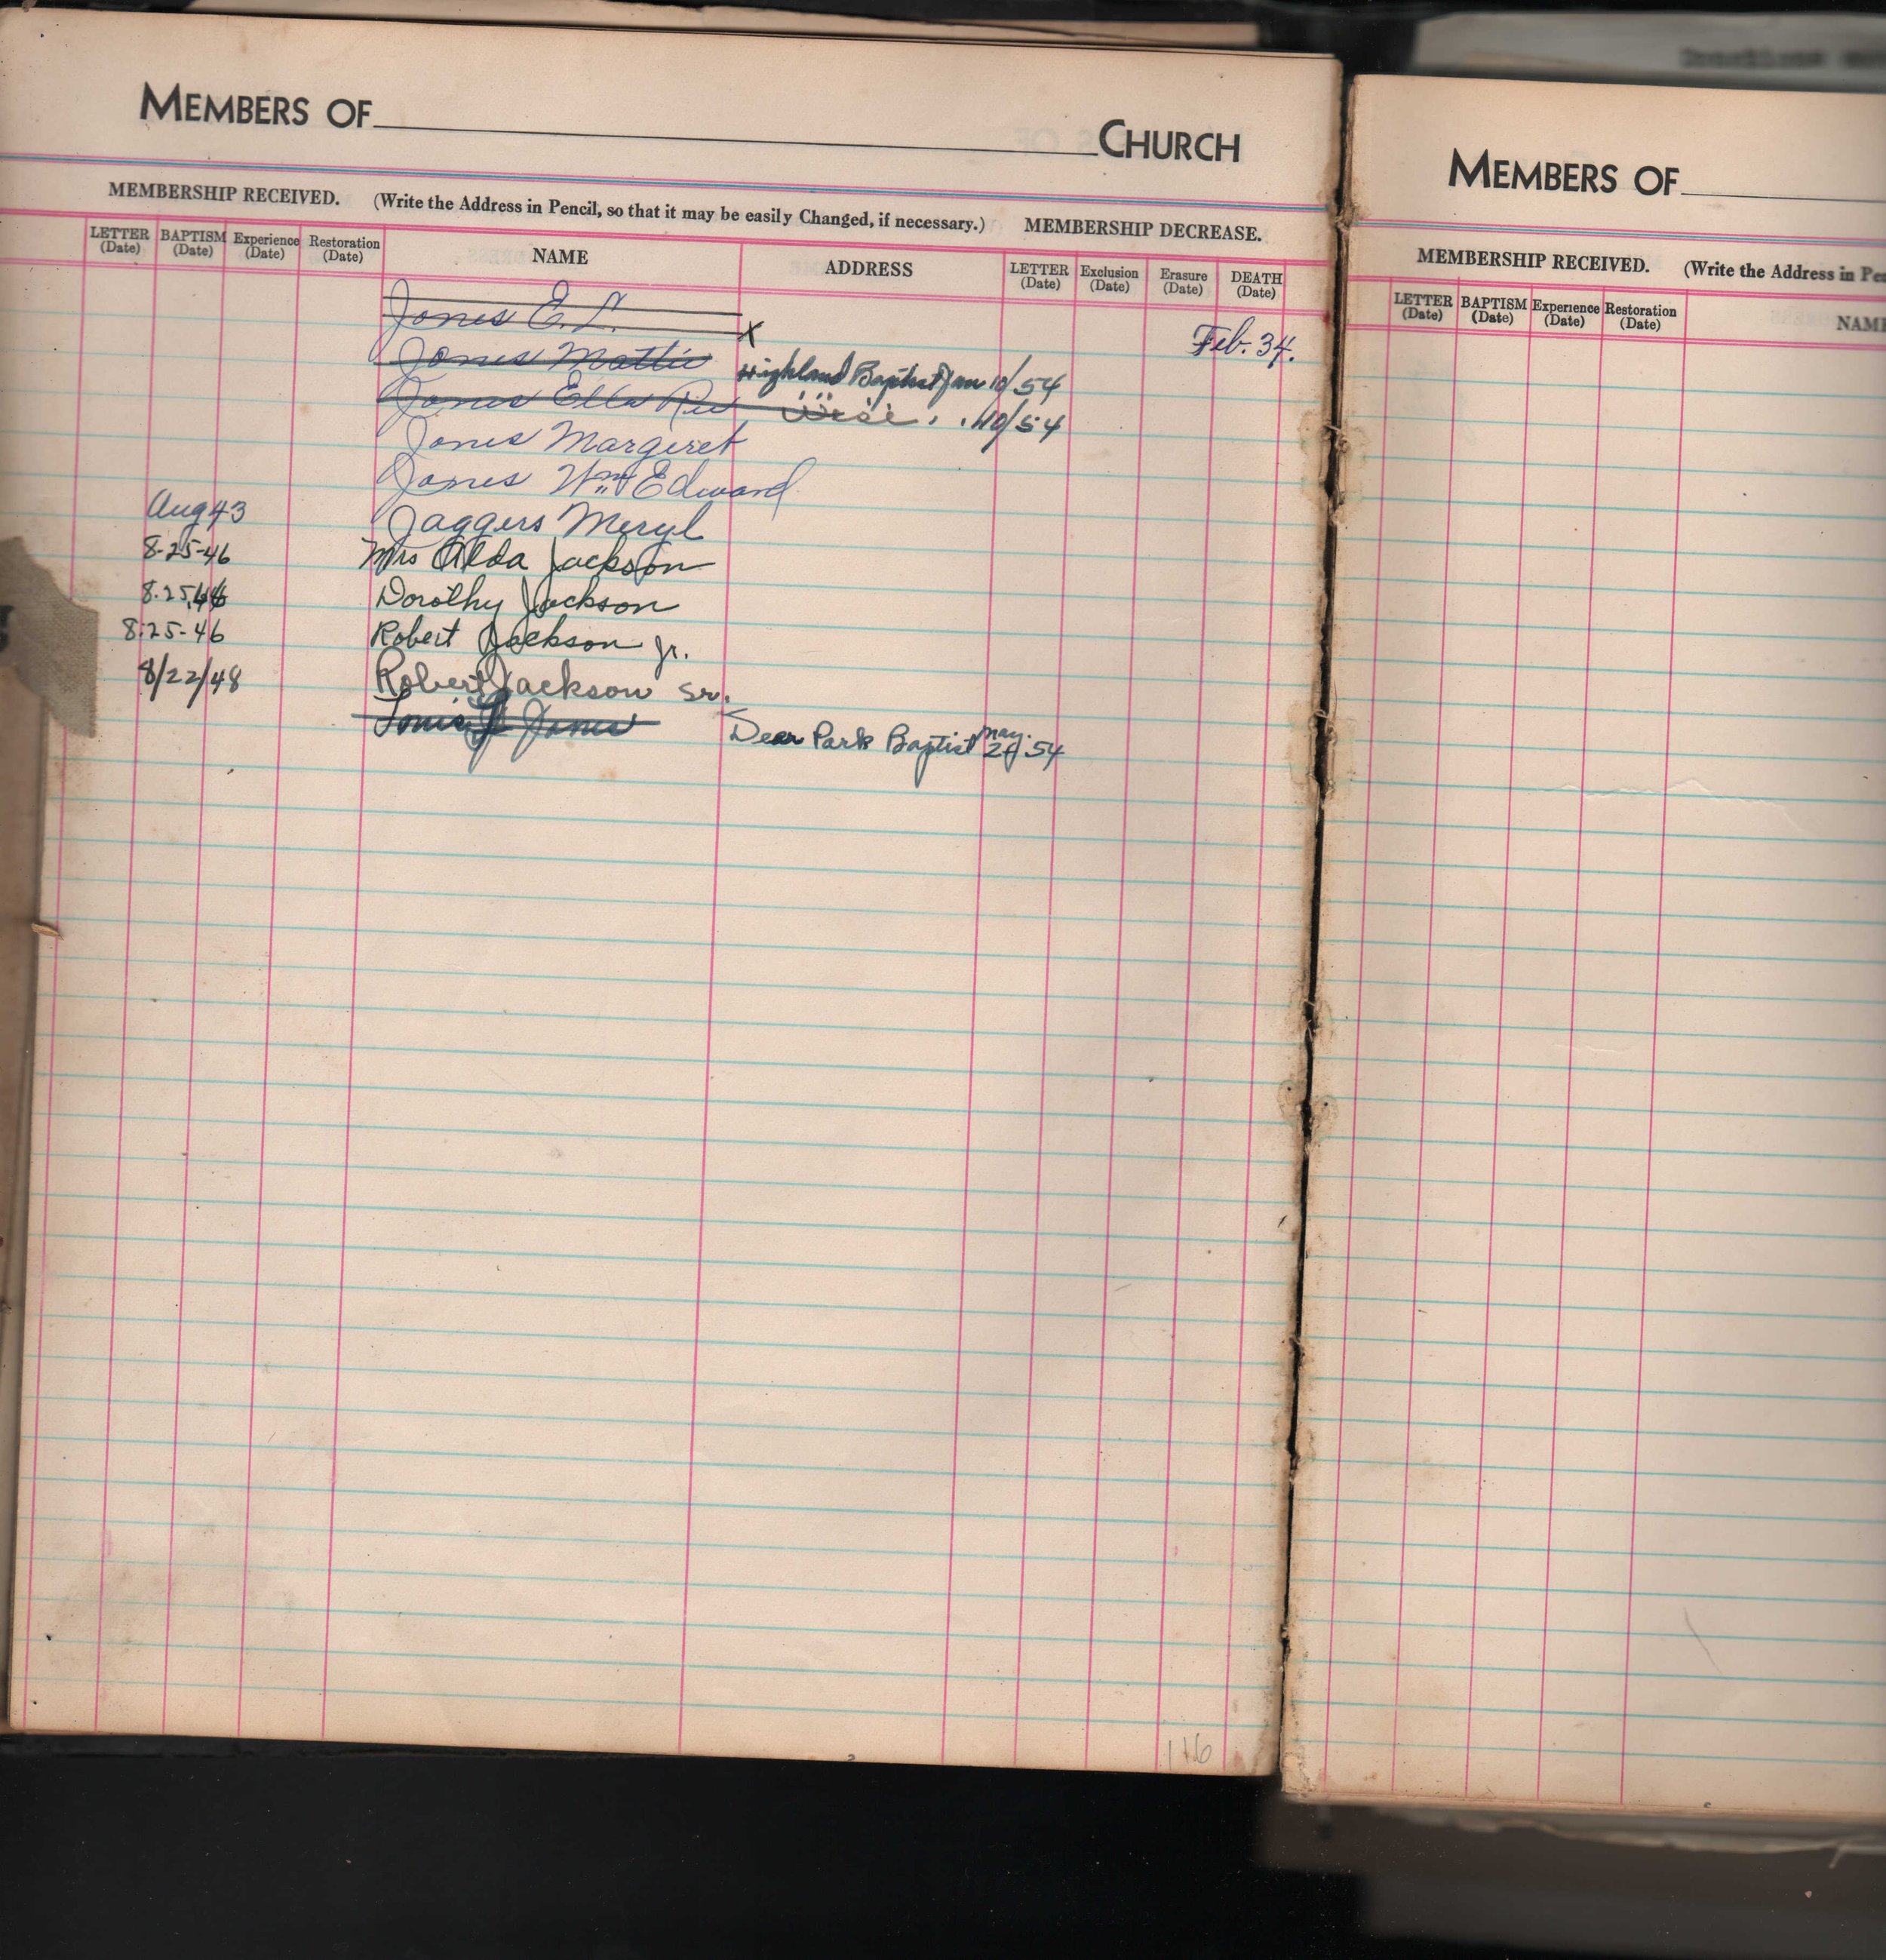 MEMBERS OF CHURCH
MEMBERSHIP RECEIVED. (Write the Address in Pencil, so that it may be easily Changed, if necessary.) MEMBERSHIP DECREASE.
LETTER (Date) BAPTISM (Date) Experience (Date) Restoration (Date) NAME ADDRESS LETTER (Date) Exclusion (Date) Erasure (Date) DEATH (Date)
Jones E. L. x Feb. 34.
Jones Mattie Highland Baptist Jan 10/54
Jones Ella 10/54
Jones Margeret
Jones Wm Edward
Aug 43 Jaggers Meryl
8-25-46 Mrs Alda Jackson
8.25.46 Dorothy Jackson
8-25-46 Robert Jackson Jr.
8/22/48 Robert Jackson Sr.
Jones Dear Park Baptist May 54
116
MEMBERS OF
MEMBERSHIP RECEIVED. (Write the Address in Pe
LETTER (Date) BAPTISM (Date) Experience (Date) Restoration (Date) NAM